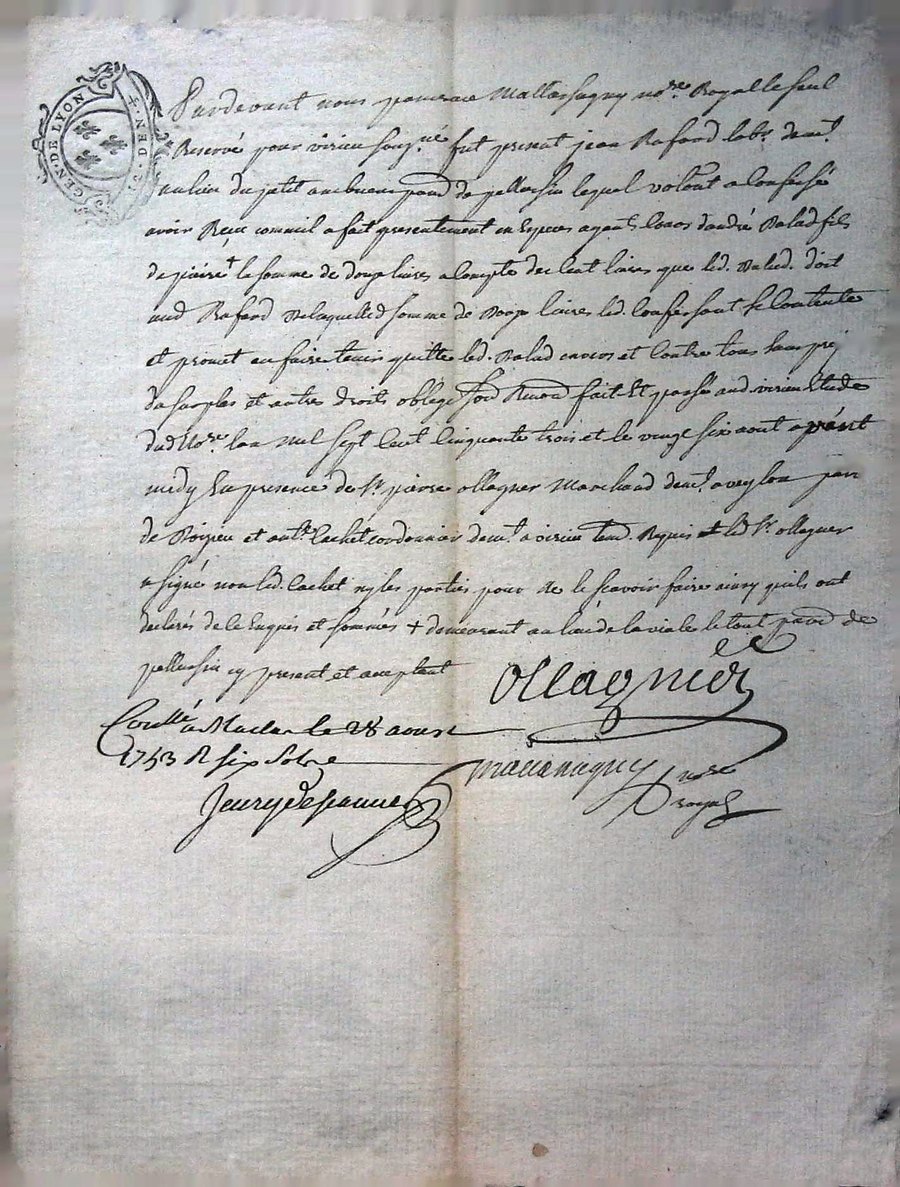 GEN. DE LYON
Pardevant nous Mattassagny no.re Royal le seul
Reservé pour virieu soug.né fut present jean Rafard lab.r dem.t
au lieu du petit ambuent par.d de pellussin lequel volont.t a confessé
avoir Reçu comme il a fait presentement en Especes ayant Cours d'andré Balad fils
de pierre la somme de douze livres a Compte de Cent livres que led. Balad. doit
aud Rafard De laquelled somme de Douze livres led. Confessant se Contente
et promet en faire tenir quitte led. Balad envers et Contre tous sans prej
du surplus et autres droits obligé fait Et passé aud virieu Etude
dud No.re lan Mil Sept Cent Cinquante trois et le vingt six aout avant
midy En presence de S.r pierre ollagner Marchand dem.t a veylon par
de Roizieu et ant.e Cachet cordonnier dem.t a virieu Requis led S.r ollagner
a signé non led. Cachet ny les parties pour ne le sçavoir faire ainsy quils ont
declarés de ce Enquis et sommés + demeurant au lieu de la viale le tout par.d de
pellussin cy present et acceptant
ollagnier
Conllé a Maclas le 28 aoust
1753 R six sols
mattassagny no.re
royal